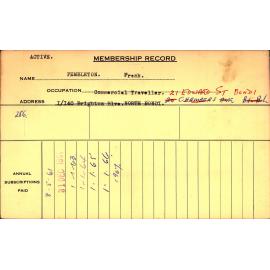 ACTIVE.
MEMBERSHIP RECORD
NAME PEMBLETON. Frank.
OCCUPATION Commercial Traveller. 21 EDWARD ST BONDI
ADDRESS 1/140 Brighton Blvd. NORTH BONDI.
286.
ANNUAL SUBSCRIPTIONS PAID
8-5-61
1.1.65
1.1.66
1967